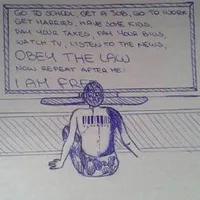 GO TO SCHOOL, GET A JOB, GO TO WORK
GET MARRIED, HAVE SOME KIDS,
PAY YOUR TAXES, PAY YOUR BILLS,
WATCH TV, LISTEN TO THE NEWS,
OBEY THE LAW
NOW REPEAT AFTER ME:
I AM FREE